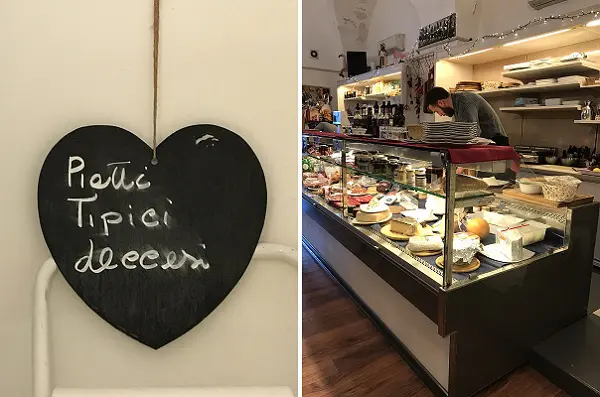 Piatti
Tipici
deccesi